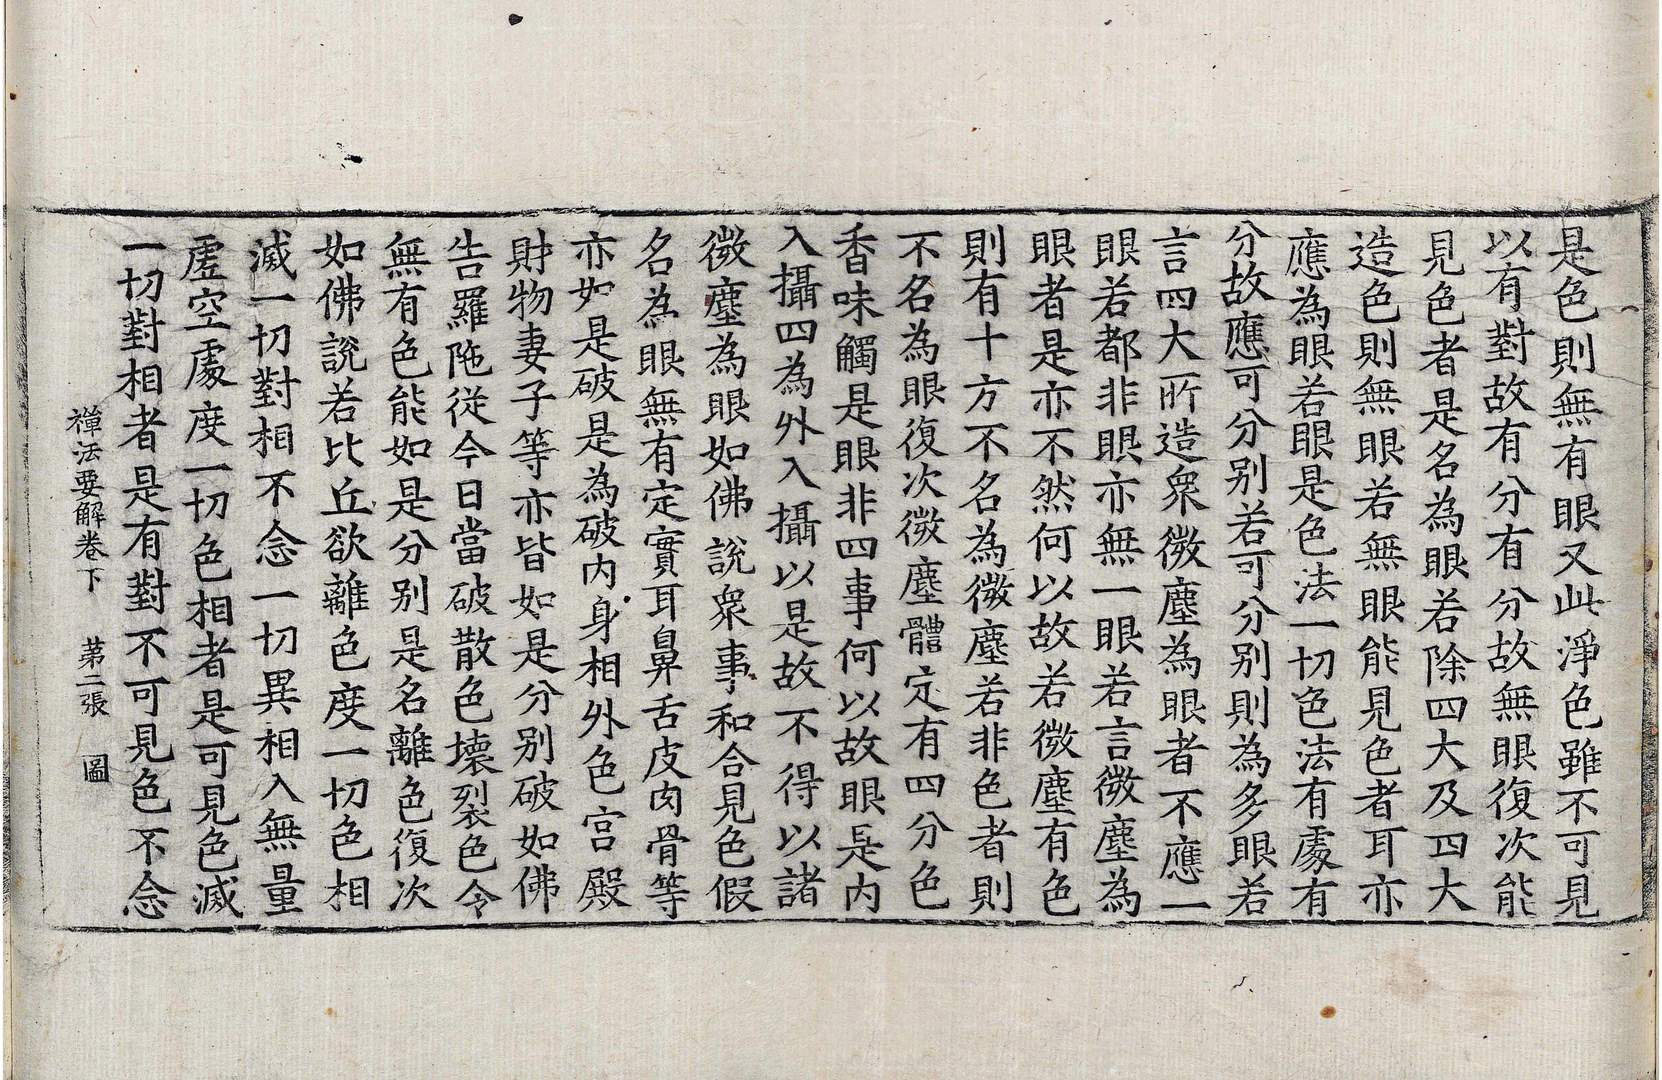 是色則無有眼又此淨色雖不可見
以有對故有分有分故無眼復次能
見色者是名為眼若除四大及四大
造色則無眼若無眼能見色者耳亦
應為眼若眼是色法一切色法有處有
分故應可分別若可分別則為多眼若
言四大所造衆微塵為眼者不應一
眼若都非眼亦無一眼若言微塵為
眼者是亦不然何以故若微塵有色
則有十方不名為微塵若非色者則
不名為眼復次微塵體定有四分色
香味觸是眼非四事何以故眼是內
入攝四為外入攝以是故不得以諸
微塵為眼如佛說衆事和合見色假
名為眼無有定實耳鼻舌皮肉骨等
亦如是破是為破內身相外色宮殿
財物妻子等亦皆如是分別破如佛
告羅陁從今日當破散色壞裂色令
無有色能如是分別是名離色復次
如佛說若比丘欲離色度一切色相
滅一切對相不念一切異相入無量
虛空處度一切色相者是可見色滅
一切對相者是有對不可見色不念
禪法要解卷下 第二張 圖